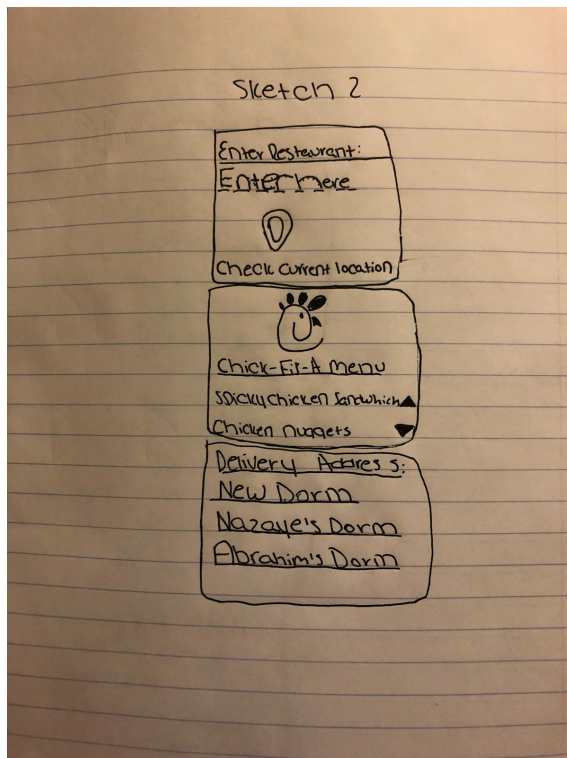 Sketch 2
Enter Restaurant:
Enter Here
Check current location
Chick-Fil-A Menu
Spicky Chicken Sandwhich
Chicken nuggets
Delivery Address:
New Dorm
Nazaye's Dorm
Abrahim's Dorm